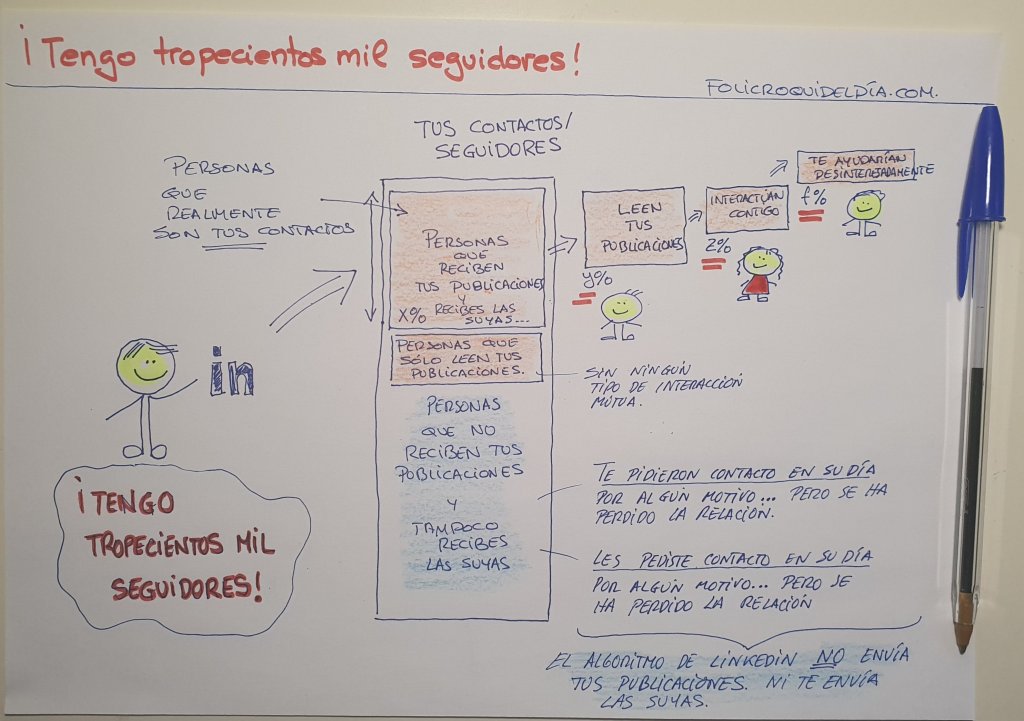 ¡Tengo tropecientos mil seguidores!
FOLICROQUIDELDÍA.COM.
TUS CONTACTOS/
SEGUIDORES
PERSONAS
QUE
REALMENTE
SON TUS CONTACTOS
PERSONAS
QUE
RECIBEN
TUS PUBLICACIONES
Y
X% RECIBES LAS
SUYAS...
PERSONAS QUE
SÓLO LEEN TUS
PUBLICACIONES.
PERSONAS
QUE NO
RECIBEN TUS
PUBLICACIONES
Y
TAMPOCO
RECIBES
LAS SUYAS
LEEN
TUS
PUBLICACIONES
y%
INTERACTÚAN
CONTIGO
z%
TE AYUDARÍAN
DESINTERESADAMENTE
f%
in
¡TENGO
TROPECIENTOS MIL
SEGUIDORES!
SIN NINGÚN
TIPO DE INTERACCIÓN
MÚTUA.
TE PIDIERON CONTACTO EN SU DÍA
POR ALGÚN MOTIVO... PERO SE HA
PERDIDO LA RELACIÓN.
LES PEDISTE CONTACTO EN SU DÍA
POR ALGÚN MOTIVO... PERO SE
HA PERDIDO LA RELACIÓN
EL ALGORITMO DE LINKEDIN NO ENVÍA
TUS PUBLICACIONES. NI TE ENVÍA
LAS SUYAS.